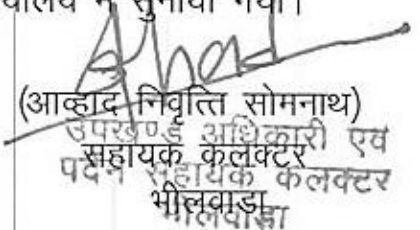 में सुनाया गया।
(आव्हाद निवृत्ति सोमनाथ)
उपखण्ड अधिकारी एवं
सहायक कलक्टर
पदेन सहायक कलक्टर
भीलवाड़ा
भीलवाड़ा